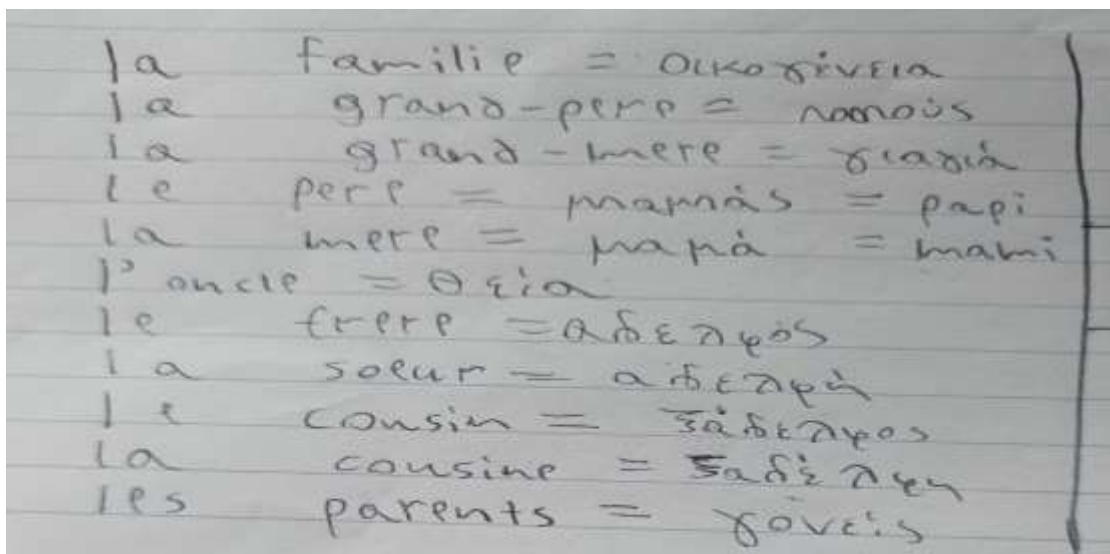 la familie = οικογένεια
la grand-pere = παπούς
la grand-mere = γιαγιά
le pere = μπαμπάς = papi
la mere = μαμά = mami
l'oncle = θεία
le frere = αδελφός
la soeur = αδελφή
le cousin = ξάδελφος
la cousine = ξαδέλφη
les parents = γονείς